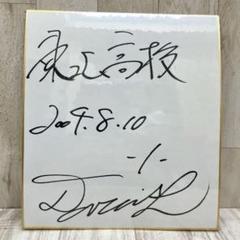 東北高校
2009.8.10
-1-